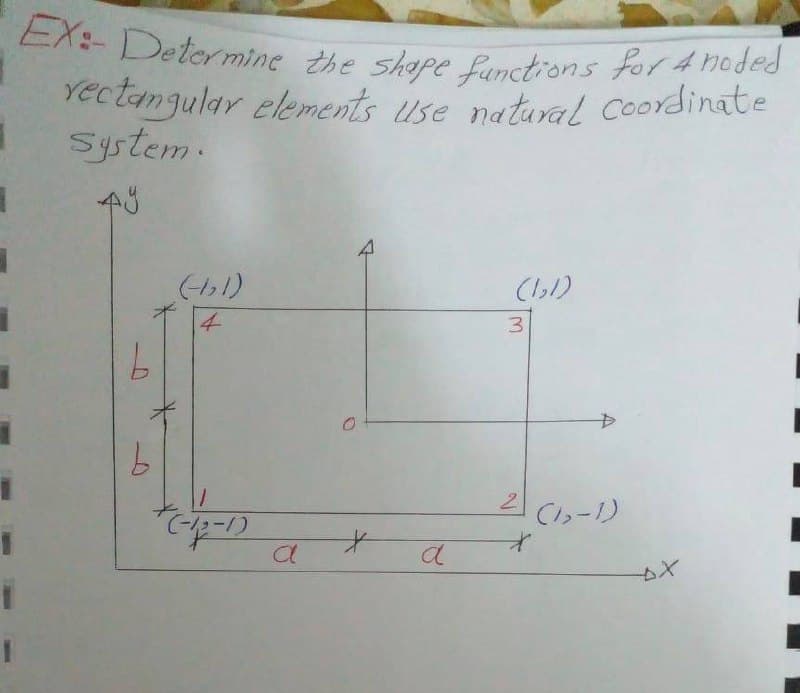 EX:- Determine the shape functions for 4 noded
rectangular elements use natural coordinate
system.
y
(-1,1)
(1,1)
4
3
b
o
b
1
2
(-1,-1)
(1,-1)
a
a
X